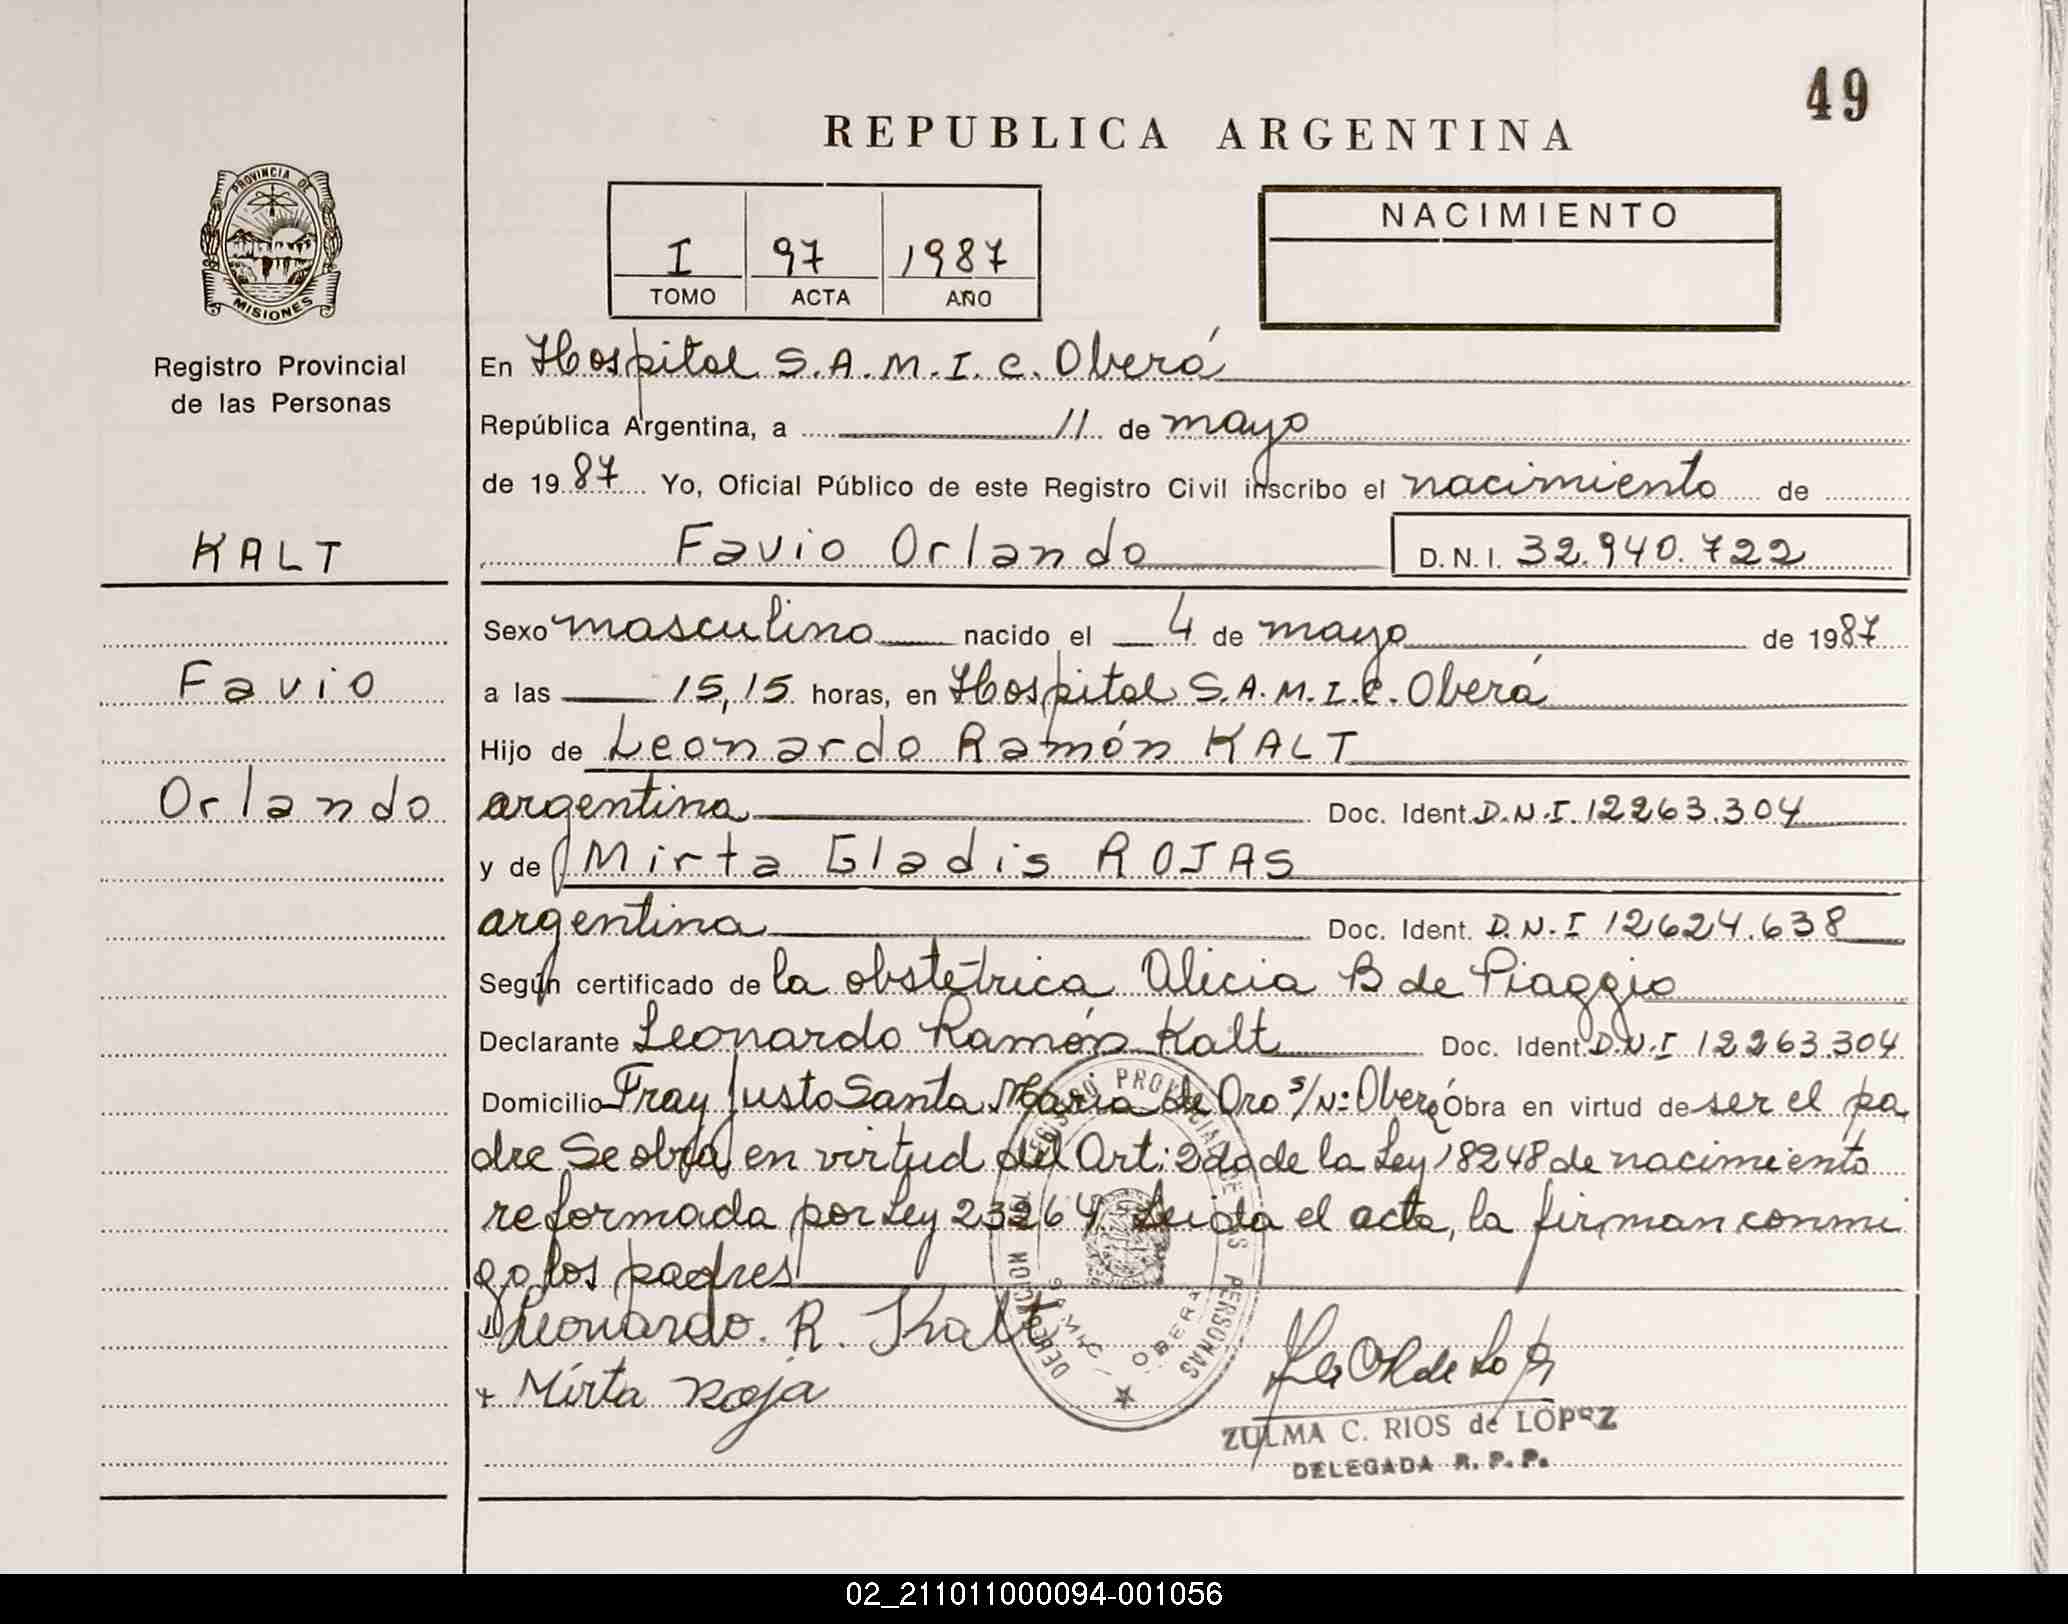 49
REPUBLICA ARGENTINA
PROVINCIA DE
MISIONES
I 97 1987
TOMO ACTA AÑO
NACIMIENTO
Registro Provincial
de las Personas
En Hospital S.A.M.I.C. Oberá
República Argentina, a 11 de mayo
de 1987 Yo, Oficial Público de este Registro Civil inscribo el nacimiento de
KALT
Favio Orlando D.N.I. 32.940.722
Sexo masculino nacido el 4 de mayo de 1987
Favio
a las 15,15 horas, en Hospital S.A.M.I.C. Oberá
Hijo de Leonardo Ramón KALT
Orlando
argentina Doc. Ident. D.N.I. 12263.304
y de Mirta Gladis ROJAS
argentina Doc. Ident. D.N.I 12624.638
Según certificado de la obstétrica Alicia B de Piaggio
Declarante Leonardo Ramón Kalt Doc. Ident. D.N.I 12263.304
Domicilio Fray Justo Santa María de Oro s/Nº Oberá Obra en virtud de ser el pa
dre Se obra en virtud del Art: 2do de la Ley 18248 de nacimiento
reformada por Ley 23264 Leída el acta, la firman conmi
go los padres
Leonardo. R. Kalt
+ Mirta Roja
REGISTRO PROVINCIAL DE LAS PERSONAS
OBERA
ZULMA C. RIOS de LOPEZ
DELEGADA R. P. P.
02_211011000094-001056